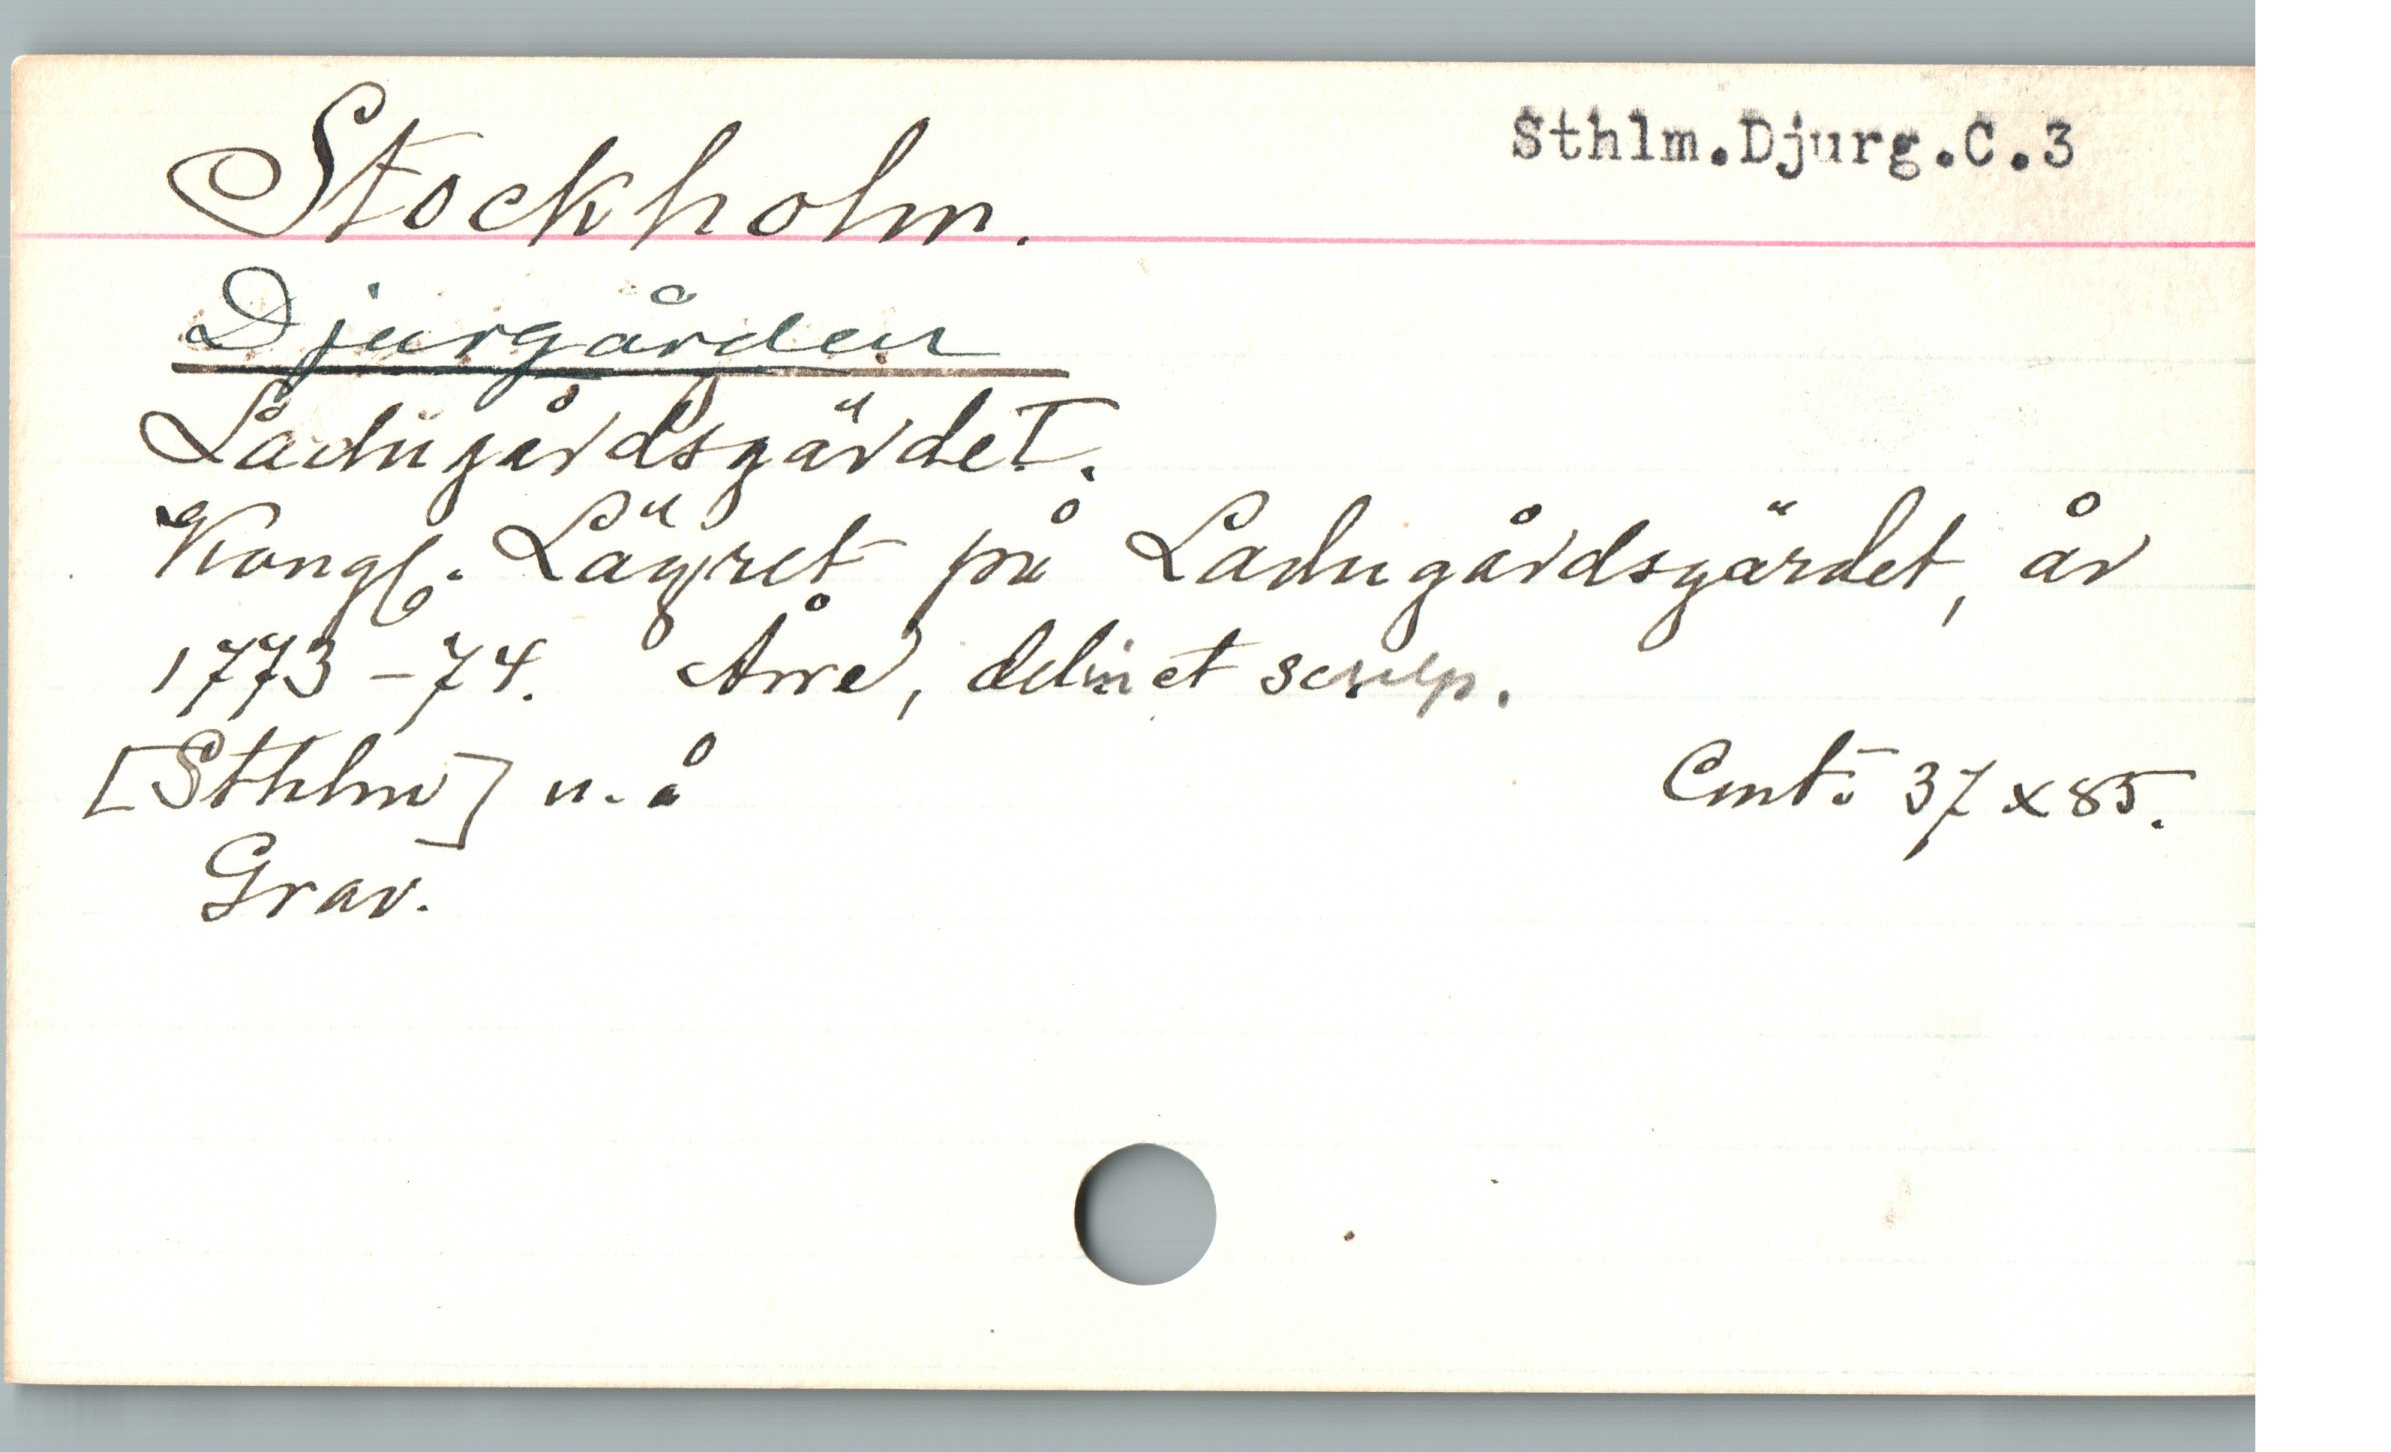 Stockholm.
Sthlm.Djurg.C.3
Djurgården
Ladugårdsgärdet.
Kongl. Lägret på Ladugårdsgärdet, år
1773-74. Årre, delin et sculp.
[Sthlm] u. å
Cmt: 37 x 85.
Grav.